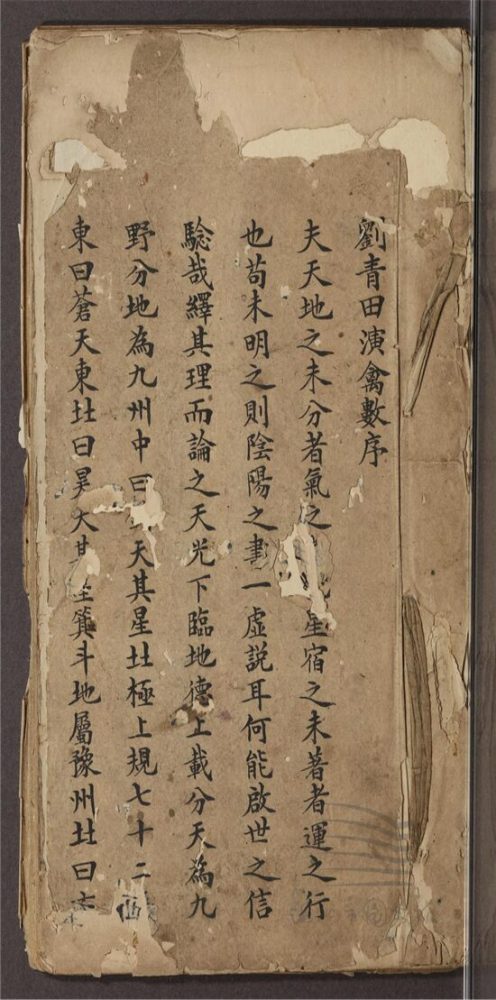 劉青田演禽數序
夫天地之未分者氣之星宿之未著者運之行
也苟未明之則陰陽之書一虛説耳何能啟世之信
騐哉繹其理而論之天光下臨地德上載分天為九
野分地為九州中曰天其星北極上規七十二
東曰蒼天東北曰昊天其星箕斗地屬豫州北曰